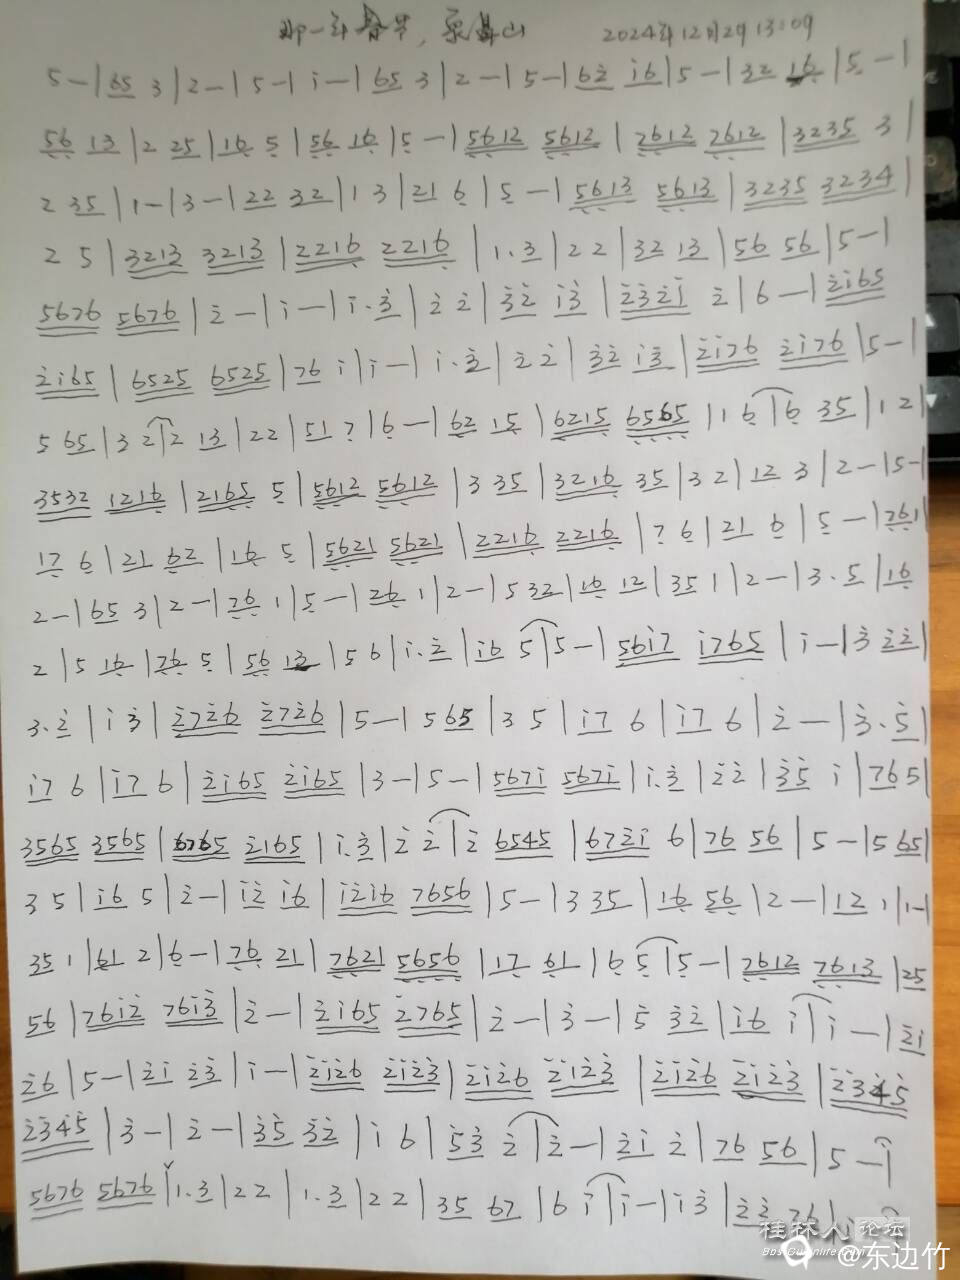 那一年春节，尧山 2024年12月29 13:09
5 - | 65 3 | 2 - | 5 - | i - | 65 3 | 2 - | 5 - | 62 i6 | 5 - | 32 16 | 5 - |
56 13 | 2 25 | 16 5 | 56 16 | 5 - | 5612 5612 | 7612 7612 | 3235 3 |
2 35 | 1 - | 3 - | 22 32 | 1 3 | 21 6 | 5 - | 5613 5613 | 3235 3234 |
2 5 | 3213 3213 | 2216 2216 | 1. 3 | 2 2 | 32 13 | 56 56 | 5 - |
5676 5676 | 2 - | i - | i. 3 | 2 2 | 32 i3 | 232i 2 | 6 - | 2i65
2i65 | 6525 6525 | 76 i | i - | i. 3 | 2 2 | 32 i3 | 2i76 2i76 | 5 - |
5 65 | 3 2 | 2 13 | 22 | 51 7 | 6 - | 62 15 | 6215 6565 | 1 6 | 6 35 | 1 2 |
3532 1216 | 2165 5 | 5612 5612 | 3 35 | 3216 35 | 3 2 | 12 3 | 2 - | 5 - |
17 6 | 21 62 | 16 5 | 5621 5621 | 2216 2216 | 7 6 | 21 6 | 5 - | 761
2 - | 65 3 | 2 - | 76 1 | 5 - | 26 1 | 2 - | 5 32 | 16 12 | 35 1 | 2 - | 3. 5 | 16
2 | 5 16 | 76 5 | 56 12 | 5 6 | i. 2 | i6 5 | 5 - | 56i7 i765 | i - | 3 22 |
3. 2 | i 3 | 2726 2726 | 5 - | 5 65 | 3 5 | i7 6 | i7 6 | 2 - | 3. 5 |
i7 6 | i7 6 | 2i65 2i65 | 3 - | 5 - | 567i 567i | i. 3 | 22 | 35 i | 76 5 |
3565 3565 | 6765 2165 | i. 3 | 2 2 | 2 6545 | 672i 6 | 76 56 | 5 - | 5 65 |
3 5 | i6 5 | 2 - | i2 i6 | i2i6 7656 | 5 - | 3 35 | 16 56 | 2 - | 12 1 | 1 - |
35 1 | 61 2 | 6 - | 76 21 | 7621 5656 | 17 61 | 6 5 | 5 - | 7612 7613 | 25
56 | 76i2 76i3 | 2 - | 2i65 2765 | 2 - | 3 - | 5 32 | i6 i | i - | 2i
26 | 5 - | 2i 23 | i - | 2i26 2i23 | 2i26 2i23 | 2i26 2i23 | 2345
2345 | 3 - | 2 - | 35 32 | i 6 | 53 2 | 2 - | 2i 2 | 76 56 | 5 - |
5676 5676 | 1. 3 | 22 | 1. 3 | 22 | 35 67 | 6 i | i - | i 3 | 22 76 | i
桂林人论坛
@东边竹